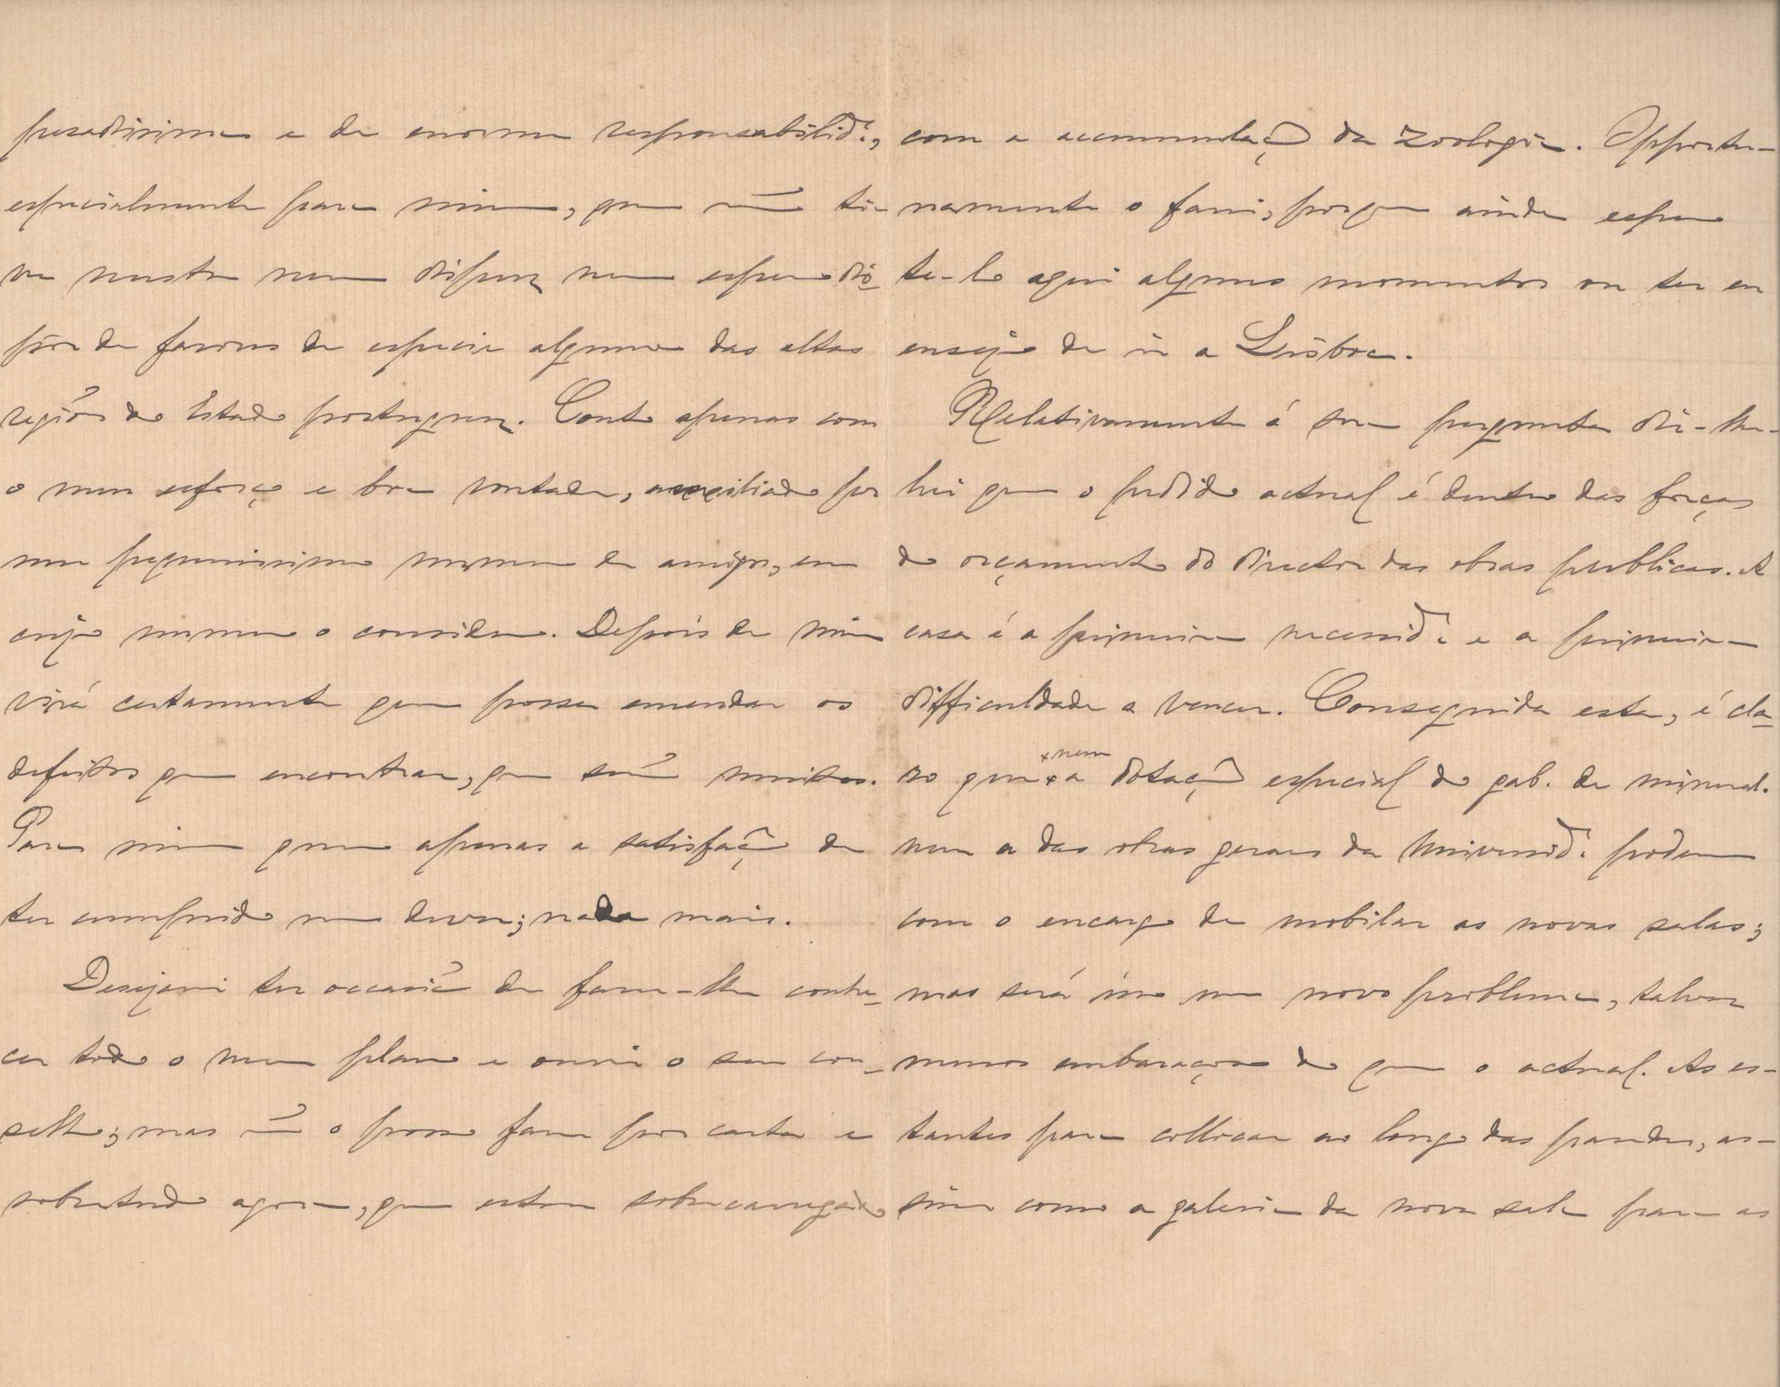 pesadissima e de enorme responsabilid.e,
especialmente para mim, que não ti-
ve nesta nem dispuz nem espero dis-
pôr de favores de especie alguma das altas
regiões do Estado portuguez. Conto apenas com
o meu esforço e boa vontade, auxiliado por
um pequenissimo numero de amigos, em
cujo numero o considero. Depois de mim
virá certamente quem possa emendar os
defeitos que encontrar, que serão muitos.
Para mim quero apenas a satisfação de
ter cumprido um dever; nada mais.
Desejava ter occasião de fazer-lhe conhe-
cer todo o meu plano e ouvir o seu con-
selho; mas não o posso fazer por carta e
sobretudo agora, que estou sobrecarregado
com a accumulação da Zoologia. Opportu-
namente o farei, porque ainda espero
te-lo aqui alguns momentos ou ter eu
ensejo de ir a Lisboa.
Relativamente á sua pergunta dir-lhe-
hei que o pedido actual é dentro das forças
do orçamento do director das obras publicas. A
casa é a primeira necessid.e e a primeira
difficuldade a vencer. Conseguida esta, é cla-
ro que nem a dotação especial do gab. de mineral.
nem a das obras geraes da Universid.e podem
com o encargo de mobilar as novas salas;
mas será isso um novo problema, talvez
menos embaraçoso do que o actual. As es-
tantes para collocar ao longo das paredes, as-
sim como a galeria da nova sala para as